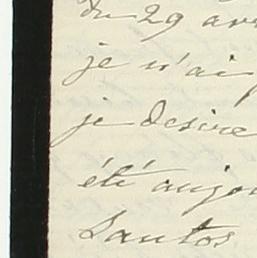 du 29 avr
je n'ai
je desire
été aujou
Santos